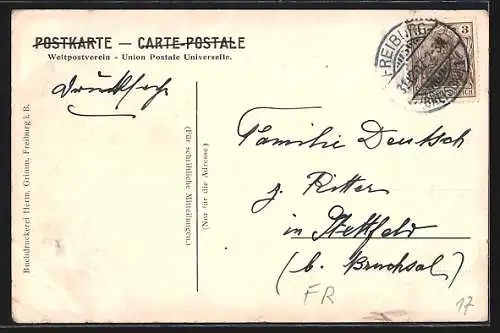 POSTKARTE — CARTE-POSTALE
Weltpostverein - Union Postale Universelle.
Drucksache
FREIBURG
3
BREISGAU
(Für schriftliche Mitteilungen)
(Nur für die Adresse)
Buchdruckerei Herm. Grimm, Freiburg i. B.
Familie Deutsch
z. Ritter
in Stettfeld
(b. Bruchsal)
FR
17